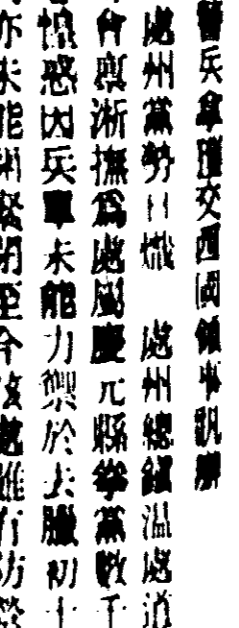 警兵拿獲交西國領事訊辦
處州黨勢日熾　處州總鎮溫處道
會稟浙撫爲處屬慶元縣拳黨數千
惶惑因兵單未能力禦於去臘初十
亦未能
至今
雖有防